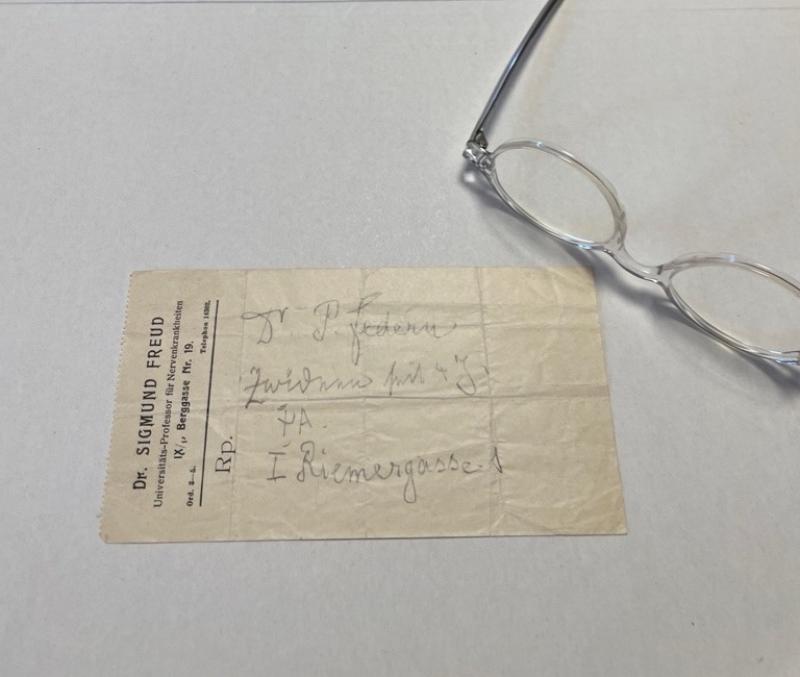 Dr. SIGMUND FREUD
Universitäts-Professor für Nervenkrankheiten
IX/1, Berggasse Nr. 19.
Ord. 3—5.
Telephon 14362.
Rp.
Dr P. Federn
seit 4 J.
I Riemergasse 1